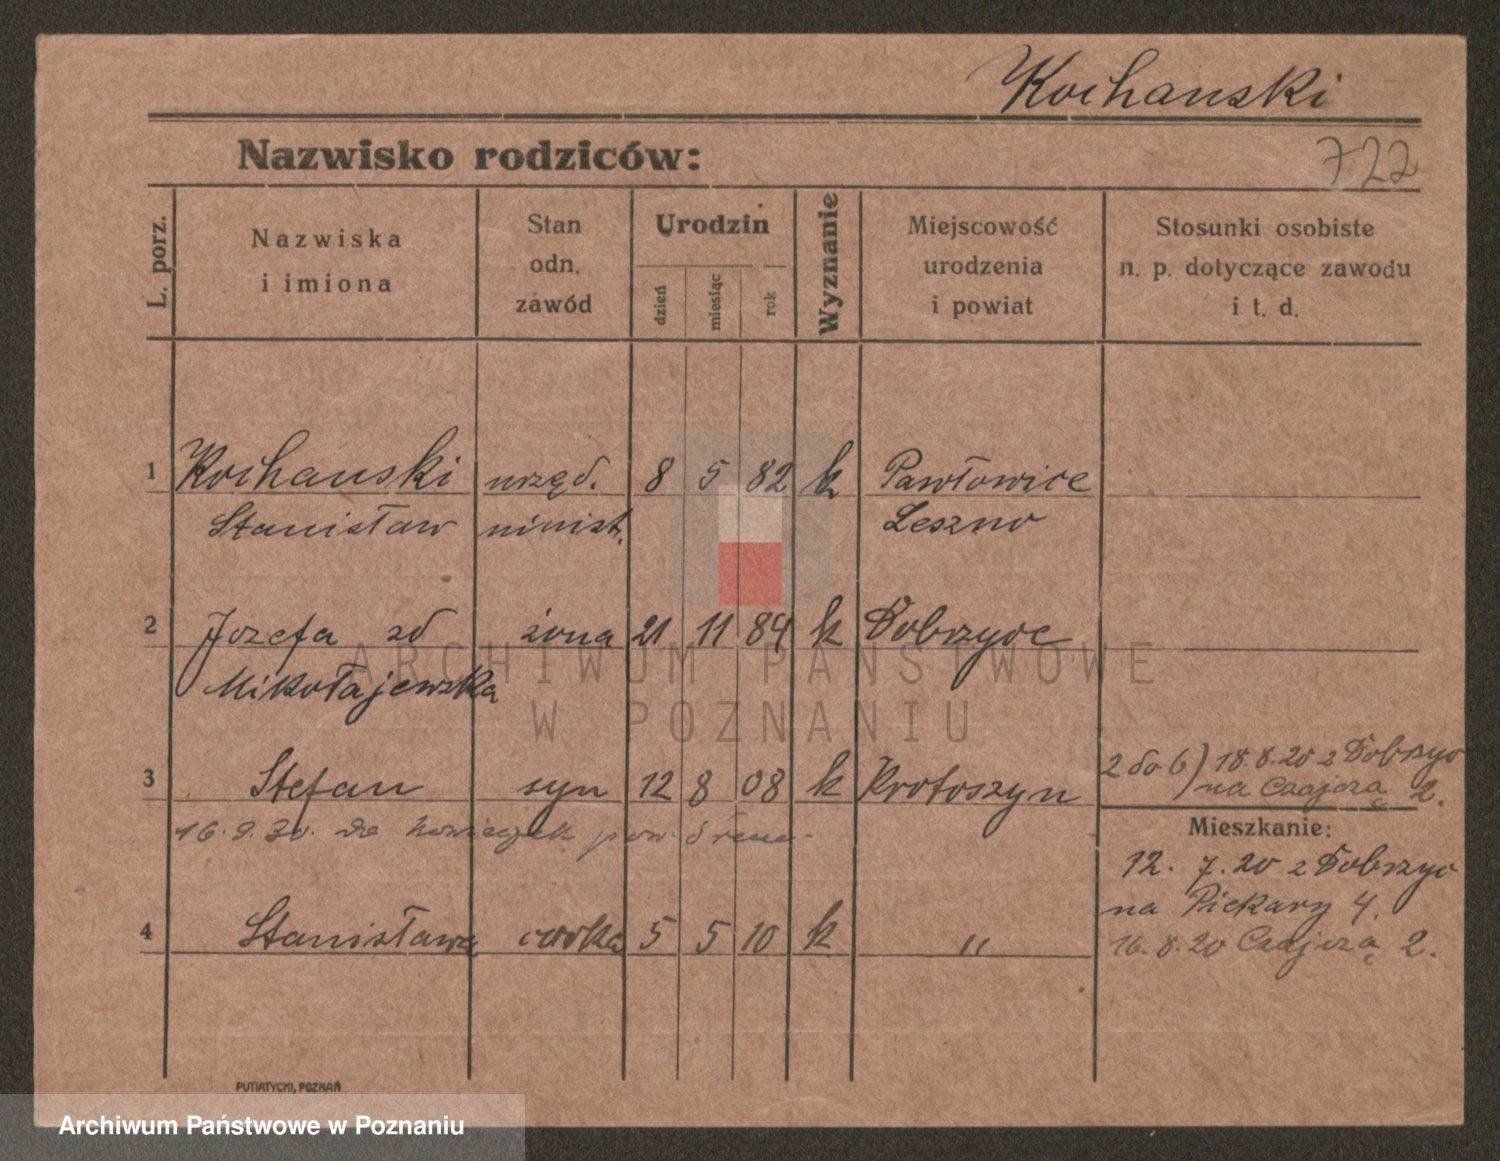 Kochanski
Nazwisko rodziców:
722
L. porz.
Nazwiska
i imiona
Stan
odn.
zawód
Urodzin
dzień
miesiąc
rok
Wyznanie
Miejscowość
urodzenia
i powiat
Stosunki osobiste
n. p. dotyczące zawodu
i t. d.
1 Kochanski urzęd. 8 5 82 k Pawłowice
Stanisław minist. Leszno
2 Józefa zd żona 21 11 84 k Dobrzyce
Mikołajewska
3 Stefan syn 12 8 08 k Krotoszyn
2 do 6) 18.8.20 z Dobrzyc
na Czajczą 2.
16.9.30. do pow. Śrem
Mieszkanie:
12. 7.20 z Dobrzyc
na Piekary 4.
4 Stanisława córka 5 5 10 k "
16.8.20 Czajczą 2.
PUTIATYCKI, POZNAŃ
ARCHIWUM PAŃSTWOWE
W POZNANIU
Archiwum Państwowe w Poznaniu